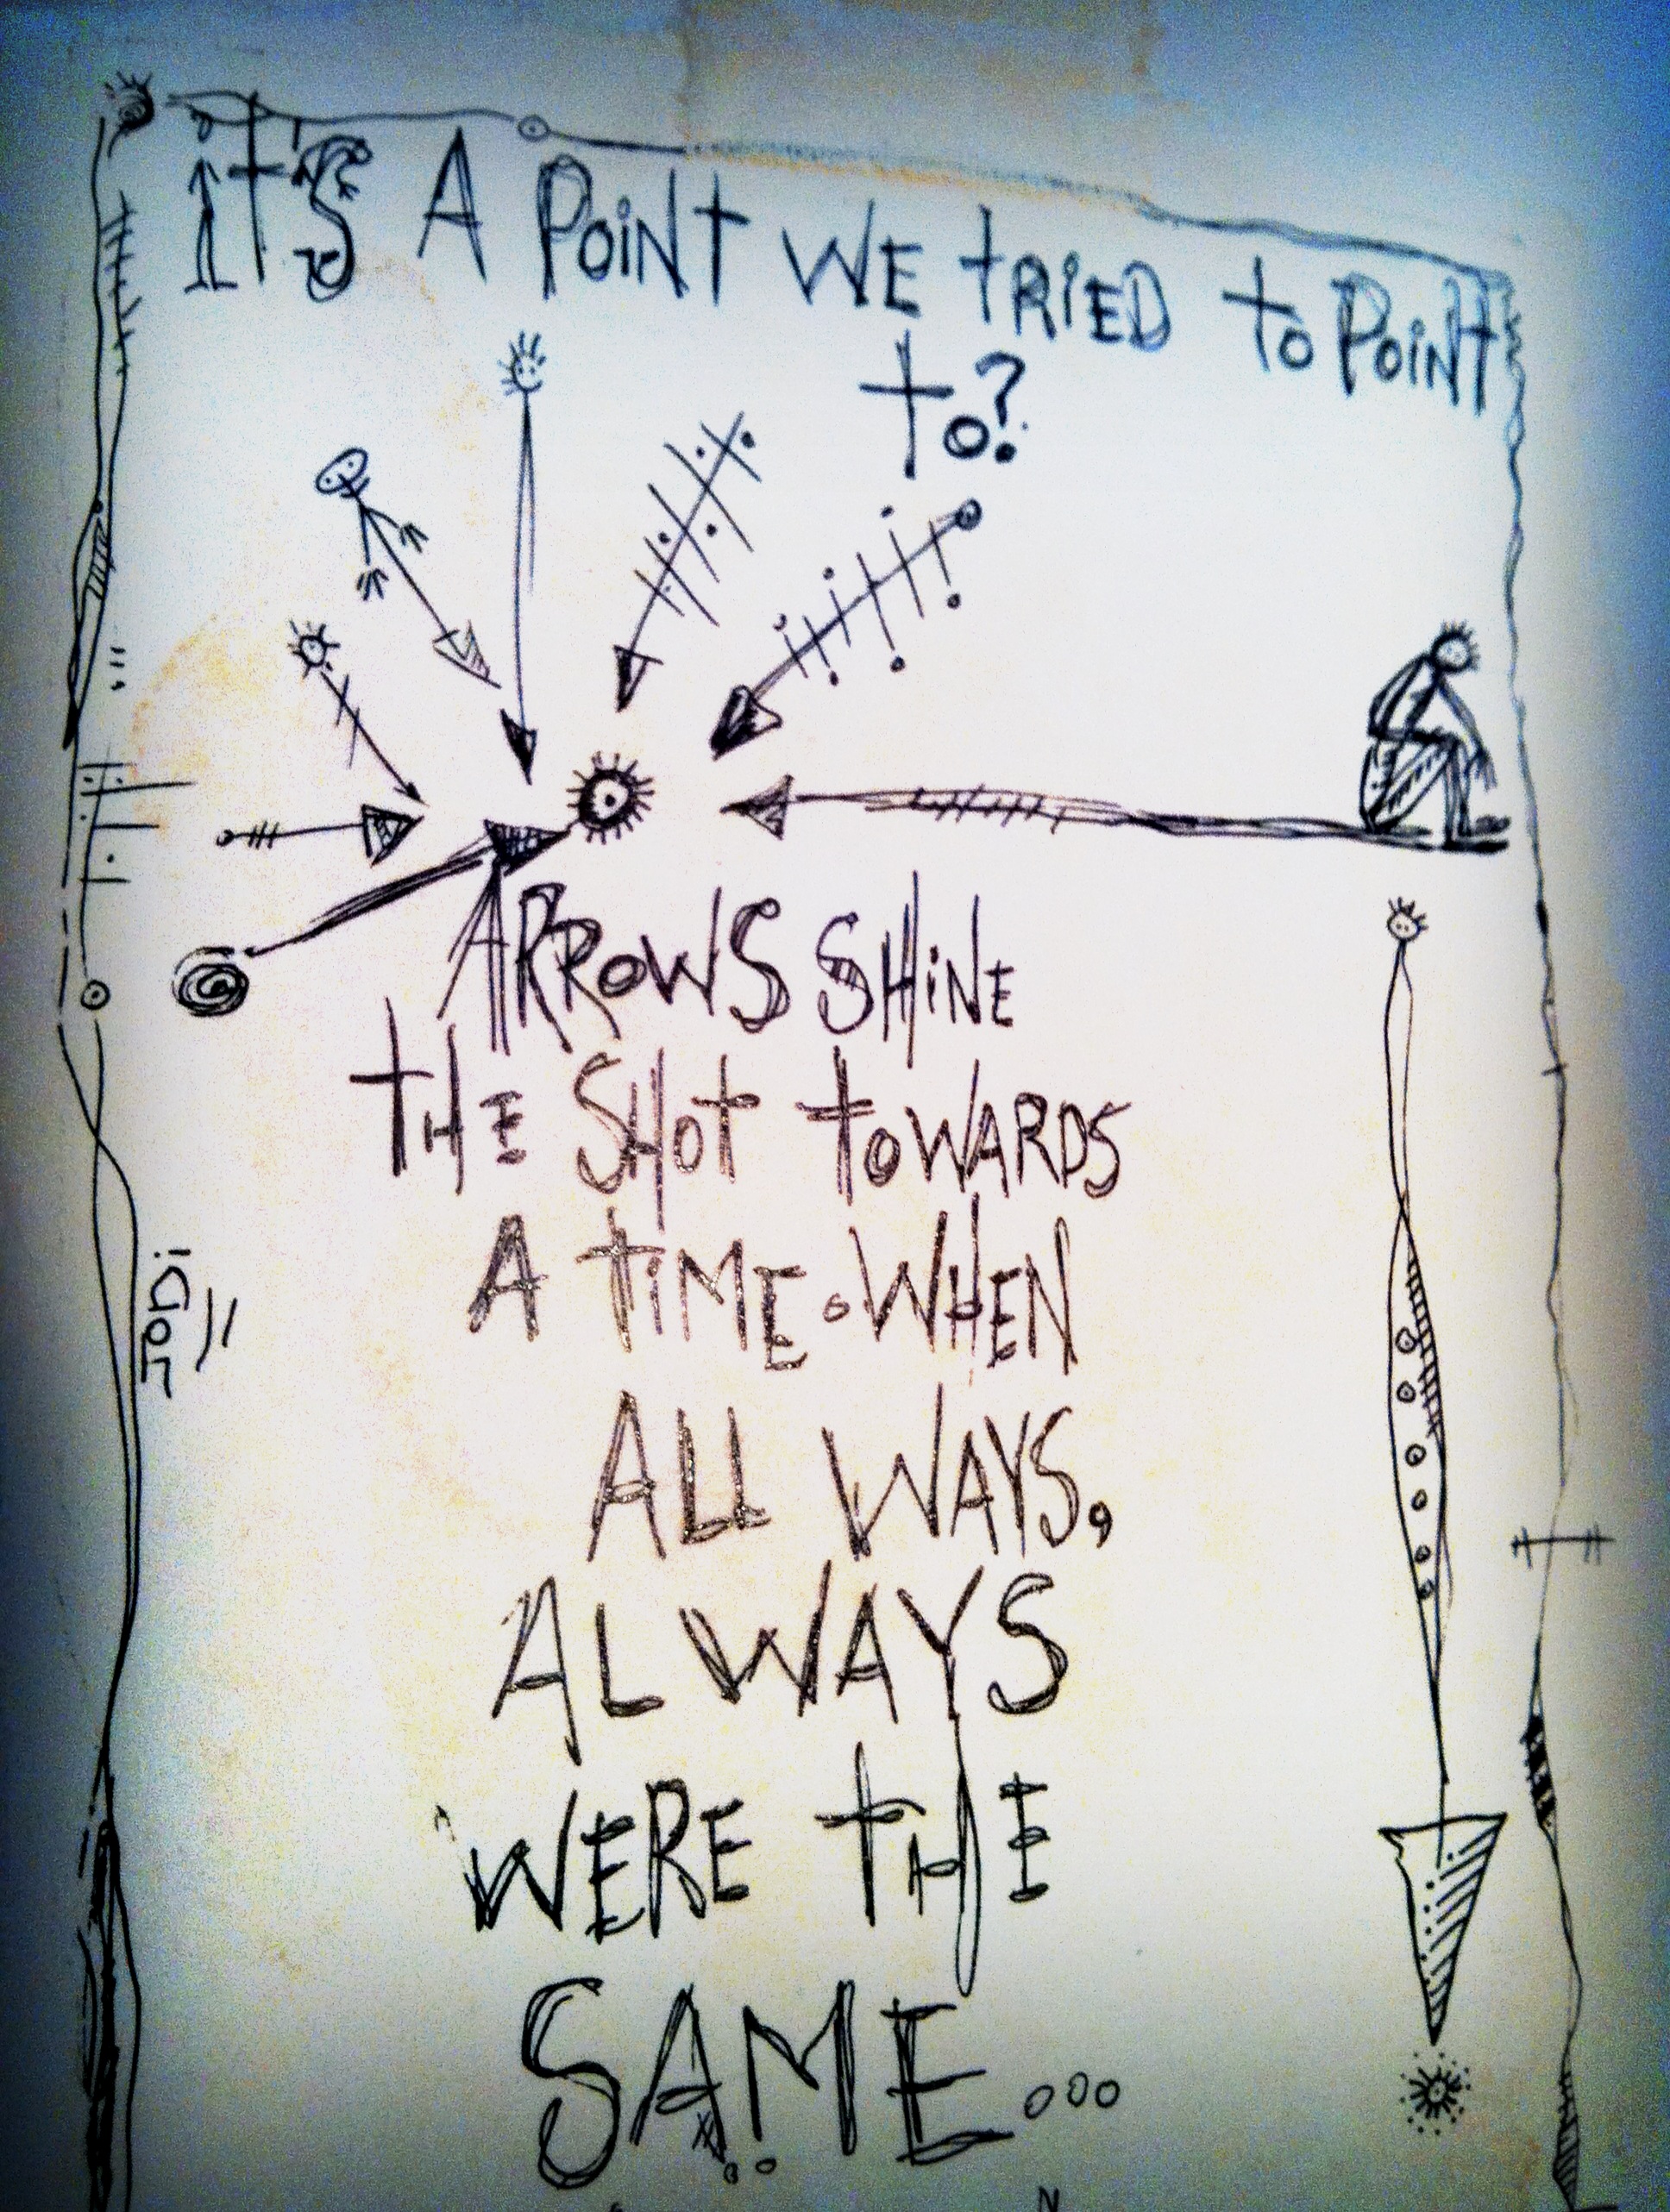 It's A Point WE tRiED to Point
to?
ARRoWS SHiNE
tHE SHot toWARDS
A tiME. WHEN
ALL WAYS,
ALWAYS
WERE tHE
SAME...
JoDi